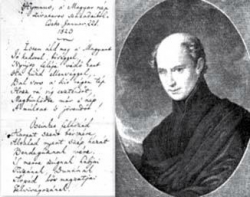 Hymnus, a' Magyar nép
zivataros századaiból.
Cseke Január 22d
1823
Isten áldd meg a' Magyart
Jó kedvvel, bőséggel,
Nyújts feléje védő kart,
Ha küzd ellenséggel;
Bal sors a' kit régen tép,
Hozz rá víg esztendőt,
Megbünhődte már e' nép
A' multat 's jövendőt.
Őseinket felhozád
Kárpát szent bérczére,
Általad nyert szép hazát
Bendegúznak vére,
'S merre zúgnak habjai
Tiszának, Dunának,
Árpád hős magzatjai
Felvirágozának.